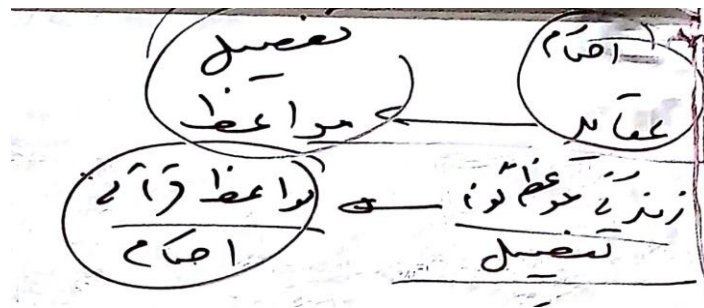 احکام
عقاید
تفصیل
مواعظ
زندگی موعظه گونه
تفصیل
مواعظ قرآنی
احکام